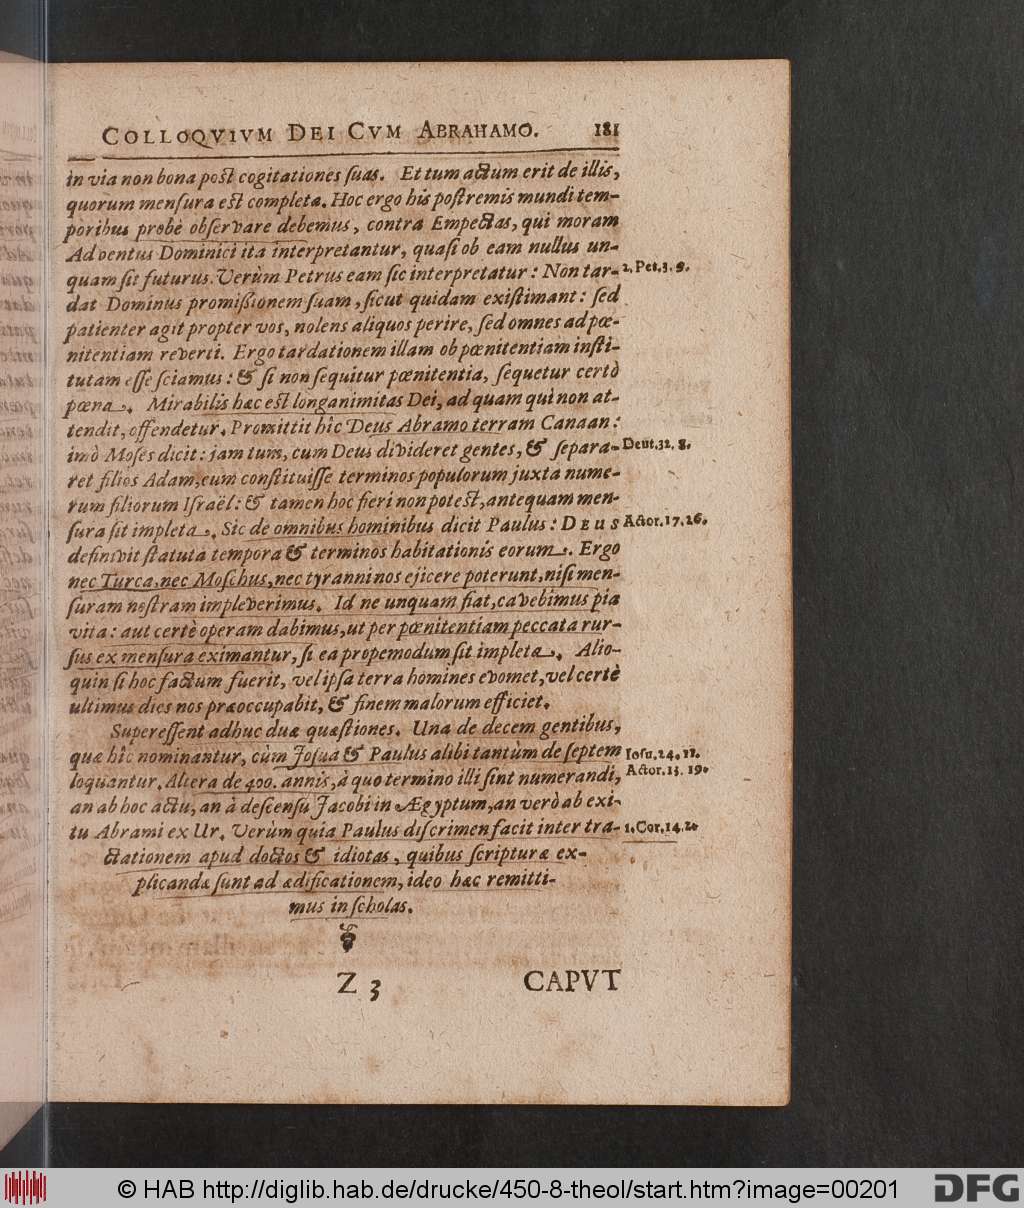 COLLOQVIVM DEI CVM ABRAHAMO. 181
in via non bona post cogitationes suas. Et tum actum erit de illis,
quorum mensura est completa. Hoc ergo his postremis mundi tem-
poribus probè observare debemus, contra Empectas, qui moram
Adventus Dominici ita interpretantur, quasi ob eam nullus un-
quam sit futurus. Verùm Petrus eam sic interpretatur: Non tar- 2. Pet. 3. 9.
dat Dominus promißionem suam, sicut quidam existimant: sed
patienter agit propter vos, nolens aliquos perire, sed omnes ad pœ-
nitentiam reverti. Ergo tardationem illam ob pœnitentiam insti-
tutam esse sciamus: & si non sequitur pœnitentia, sequetur certò
pœna. Mirabilis hæc est longanimitas Dei, ad quam qui non at-
tendit, offendetur. Promittit hîc Deus Abramo terram Canaan:
imò Moses dicit: jam tum, cum Deus divideret gentes, & separa- Deut. 32. 8.
ret filios Adam, eum constituisse terminos populorum juxta nume-
rum filiorum Israël: & tamen hoc fieri non potest, antequam men-
sura sit impleta. Sic de omnibus hominibus dicit Paulus: DEUS Actor. 17. 26.
definivit statuta tempora & terminos habitationis eorum. Ergo
nec Turca, nec Moschus, nec tyranni nos ejicere poterunt, nisi men-
suram nostram impleverimus. Id ne unquam fiat, cavebimus pia
vita: aut certè operam dabimus, ut per pœnitentiam peccata rur-
sus ex mensura eximantur, si ea propemodum sit impleta. Alio-
quin si hoc factum fuerit, vel ipsa terra homines evomet, vel certè
ultimus dies nos præoccupabit, & finem malorum efficiet.
Superessent adhuc duæ quæstiones. Una de decem gentibus,
quæ hîc nominantur, cùm Josua & Paulus alibi tantùm de septem Iosu. 24. 11.
loquantur. Altera de 400. annis, à quo termino illi sint numerandi, Actor. 13. 19.
an ab hoc actu, an à descensu Jacobi in Ægyptum, an verò ab exi-
tu Abrami ex Ur. Verùm quia Paulus discrimen facit inter tra- 1. Cor. 14. 2.
ctationem apud doctos & idiotas, quibus scripturæ ex-
plicandæ sunt ad ædificationem, ideo hæc remitti-
mus in scholas.
Z 3 CAPVT
© HAB http://diglib.hab.de/drucke/450-8-theol/start.htm?image=00201 DFG